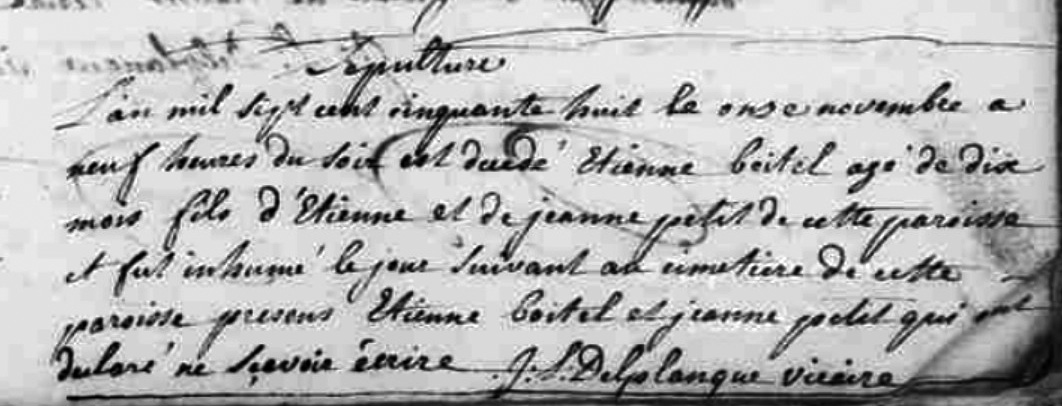 Sépulture
L'an mil sept cent cinquante huit le onze novembre a
neuf heures du soir est decedé Etienne boitel agé de dix
mois fils d'Etienne et de jeanne petit de cette paroisse
et fut inhumé le jour suivant au cimetiere de cette
paroisse presens Etienne boitel et jeanne petit qui ont
declaré ne sçavoir écrire J: L: Delplanque vicaire